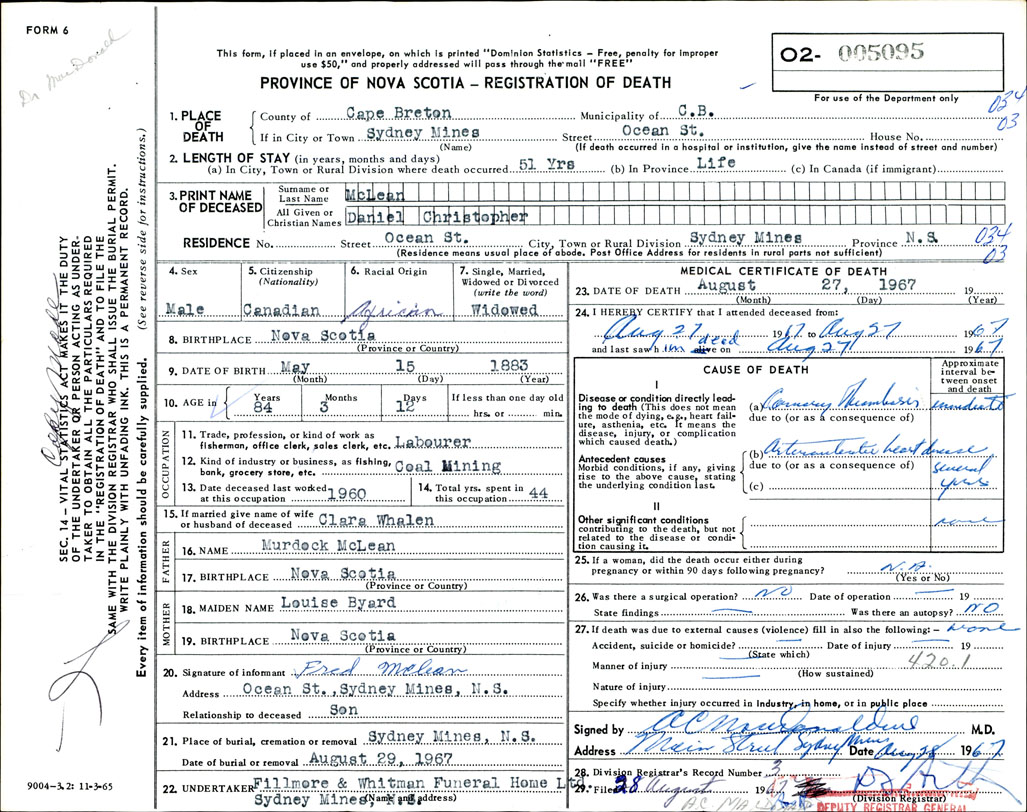 FORM 6
Dr MacDonald
This form, if placed in an envelope, on which is printed "Dominion Statistics – Free, penalty for improper
use $50," and properly addressed will pass through the mail "FREE"
PROVINCE OF NOVA SCOTIA – REGISTRATION OF DEATH
O2- 005095
For use of the Department only
034
03
1. PLACE OF DEATH
County of Cape Breton Municipality of C.B.
If in City or Town Sydney Mines Street Ocean St. House No.
(Name) (If death occurred in a hospital or institution, give the name instead of street and number)
2. LENGTH OF STAY (in years, months and days)
(a) In City, Town or Rural Division where death occurred 51 Yrs (b) In Province Life (c) In Canada (if immigrant)
3. PRINT NAME OF DECEASED
Surname or Last Name McLean
All Given or Christian Names Daniel Christopher
RESIDENCE No. Street Ocean St. City, Town or Rural Division Sydney Mines Province N.S. 034
(Residence means usual place of abode. Post Office Address for residents in rural parts not sufficient) 03
4. Sex
Male
5. Citizenship
(Nationality)
Canadian
6. Racial Origin
African
7. Single, Married,
Widowed or Divorced
(write the word)
Widowed
8. BIRTHPLACE Nova Scotia
(Province or Country)
9. DATE OF BIRTH May 15 1883
(Month) (Day) (Year)
10. AGE in Years Months Days If less than one day old
84 3 12 hrs. or min.
OCCUPATION
11. Trade, profession, or kind of work as
fisherman, office clerk, sales clerk, etc. Labourer
12. Kind of industry or business, as fishing,
bank, grocery store, etc. Coal Mining
13. Date deceased last worked
at this occupation 1960
14. Total yrs. spent in
this occupation 44
15. If married give name of wife
or husband of deceased Clara Whalen
FATHER
16. NAME Murdock McLean
17. BIRTHPLACE Nova Scotia
(Province or Country)
MOTHER
18. MAIDEN NAME Louise Byard
19. BIRTHPLACE Nova Scotia
(Province or Country)
20. Signature of informant Fred McLean
Address Ocean St., Sydney Mines, N.S.
Relationship to deceased Son
21. Place of burial, cremation or removal Sydney Mines, N.S.
Date of burial or removal August 29, 1967
22. UNDERTAKER Fillmore & Whitman Funeral Home Ltd
Sydney Mines, (Name and address)
MEDICAL CERTIFICATE OF DEATH
23. DATE OF DEATH August 27, 1967 19
(Month) (Day) (Year)
24. I HEREBY CERTIFY that I attended deceased from:
Aug 27 1967 to Aug 27 1967
and last saw h im dead alive on Aug 27 1967
CAUSE OF DEATH
Approximate
interval be-
tween onset
and death
I
Disease or condition directly lead-
ing to death (This does not mean
the mode of dying, e.g., heart fail-
ure, asthenia, etc. It means the
disease, injury, or complication
which caused death.)
(a) Coronary Thrombosis immediate
due to (or as a consequence of)
Antecedent causes
Morbid conditions, if any, giving
rise to the above cause, stating
the underlying condition last.
(b) heart disease
due to (or as a consequence of) several
(c) yrs
II
Other significant conditions
contributing to the death, but not
related to the disease or condi-
tion causing it.
none
25. If a woman, did the death occur either during
pregnancy or within 90 days following pregnancy? N.A.
(Yes or No)
26. Was there a surgical operation? NO Date of operation 19
State findings Was there an autopsy? NO
27. If death was due to external causes (violence) fill in also the following: – None
Accident, suicide or homicide? Date of injury 19
(State which) 420.1
Manner of injury
(How sustained)
Nature of injury
Specify whether injury occurred in Industry, in home, or in public place
Signed by M.D.
Address Main Street Sydney Mines Date Aug 28 1967
28. Division Registrar's Record Number 3
29. Filed 28 August 196
(Division Registrar)
DEPUTY REGISTRAR GENERAL
SEC. 14 – VITAL STATISTICS ACT MAKES IT THE DUTY
OF THE UNDERTAKER OR PERSON ACTING AS UNDER-
TAKER TO OBTAIN ALL THE PARTICULARS REQUIRED
IN THE "REGISTRATION OF DEATH" AND TO FILE THE
SAME WITH THE DIVISION REGISTRAR WHO SHALL ISSUE THE BURIAL PERMIT.
WRITE PLAINLY WITH UNFADING INK. THIS IS A PERMANENT RECORD.
Every item of information should be carefully supplied. (See reverse side for instructions.)
9004-3.2: 11-3-65